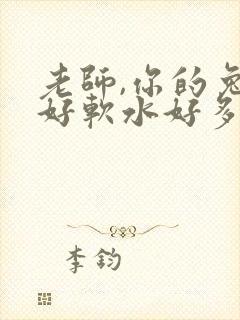 老師,你的兔
好軟水好多
李鈞